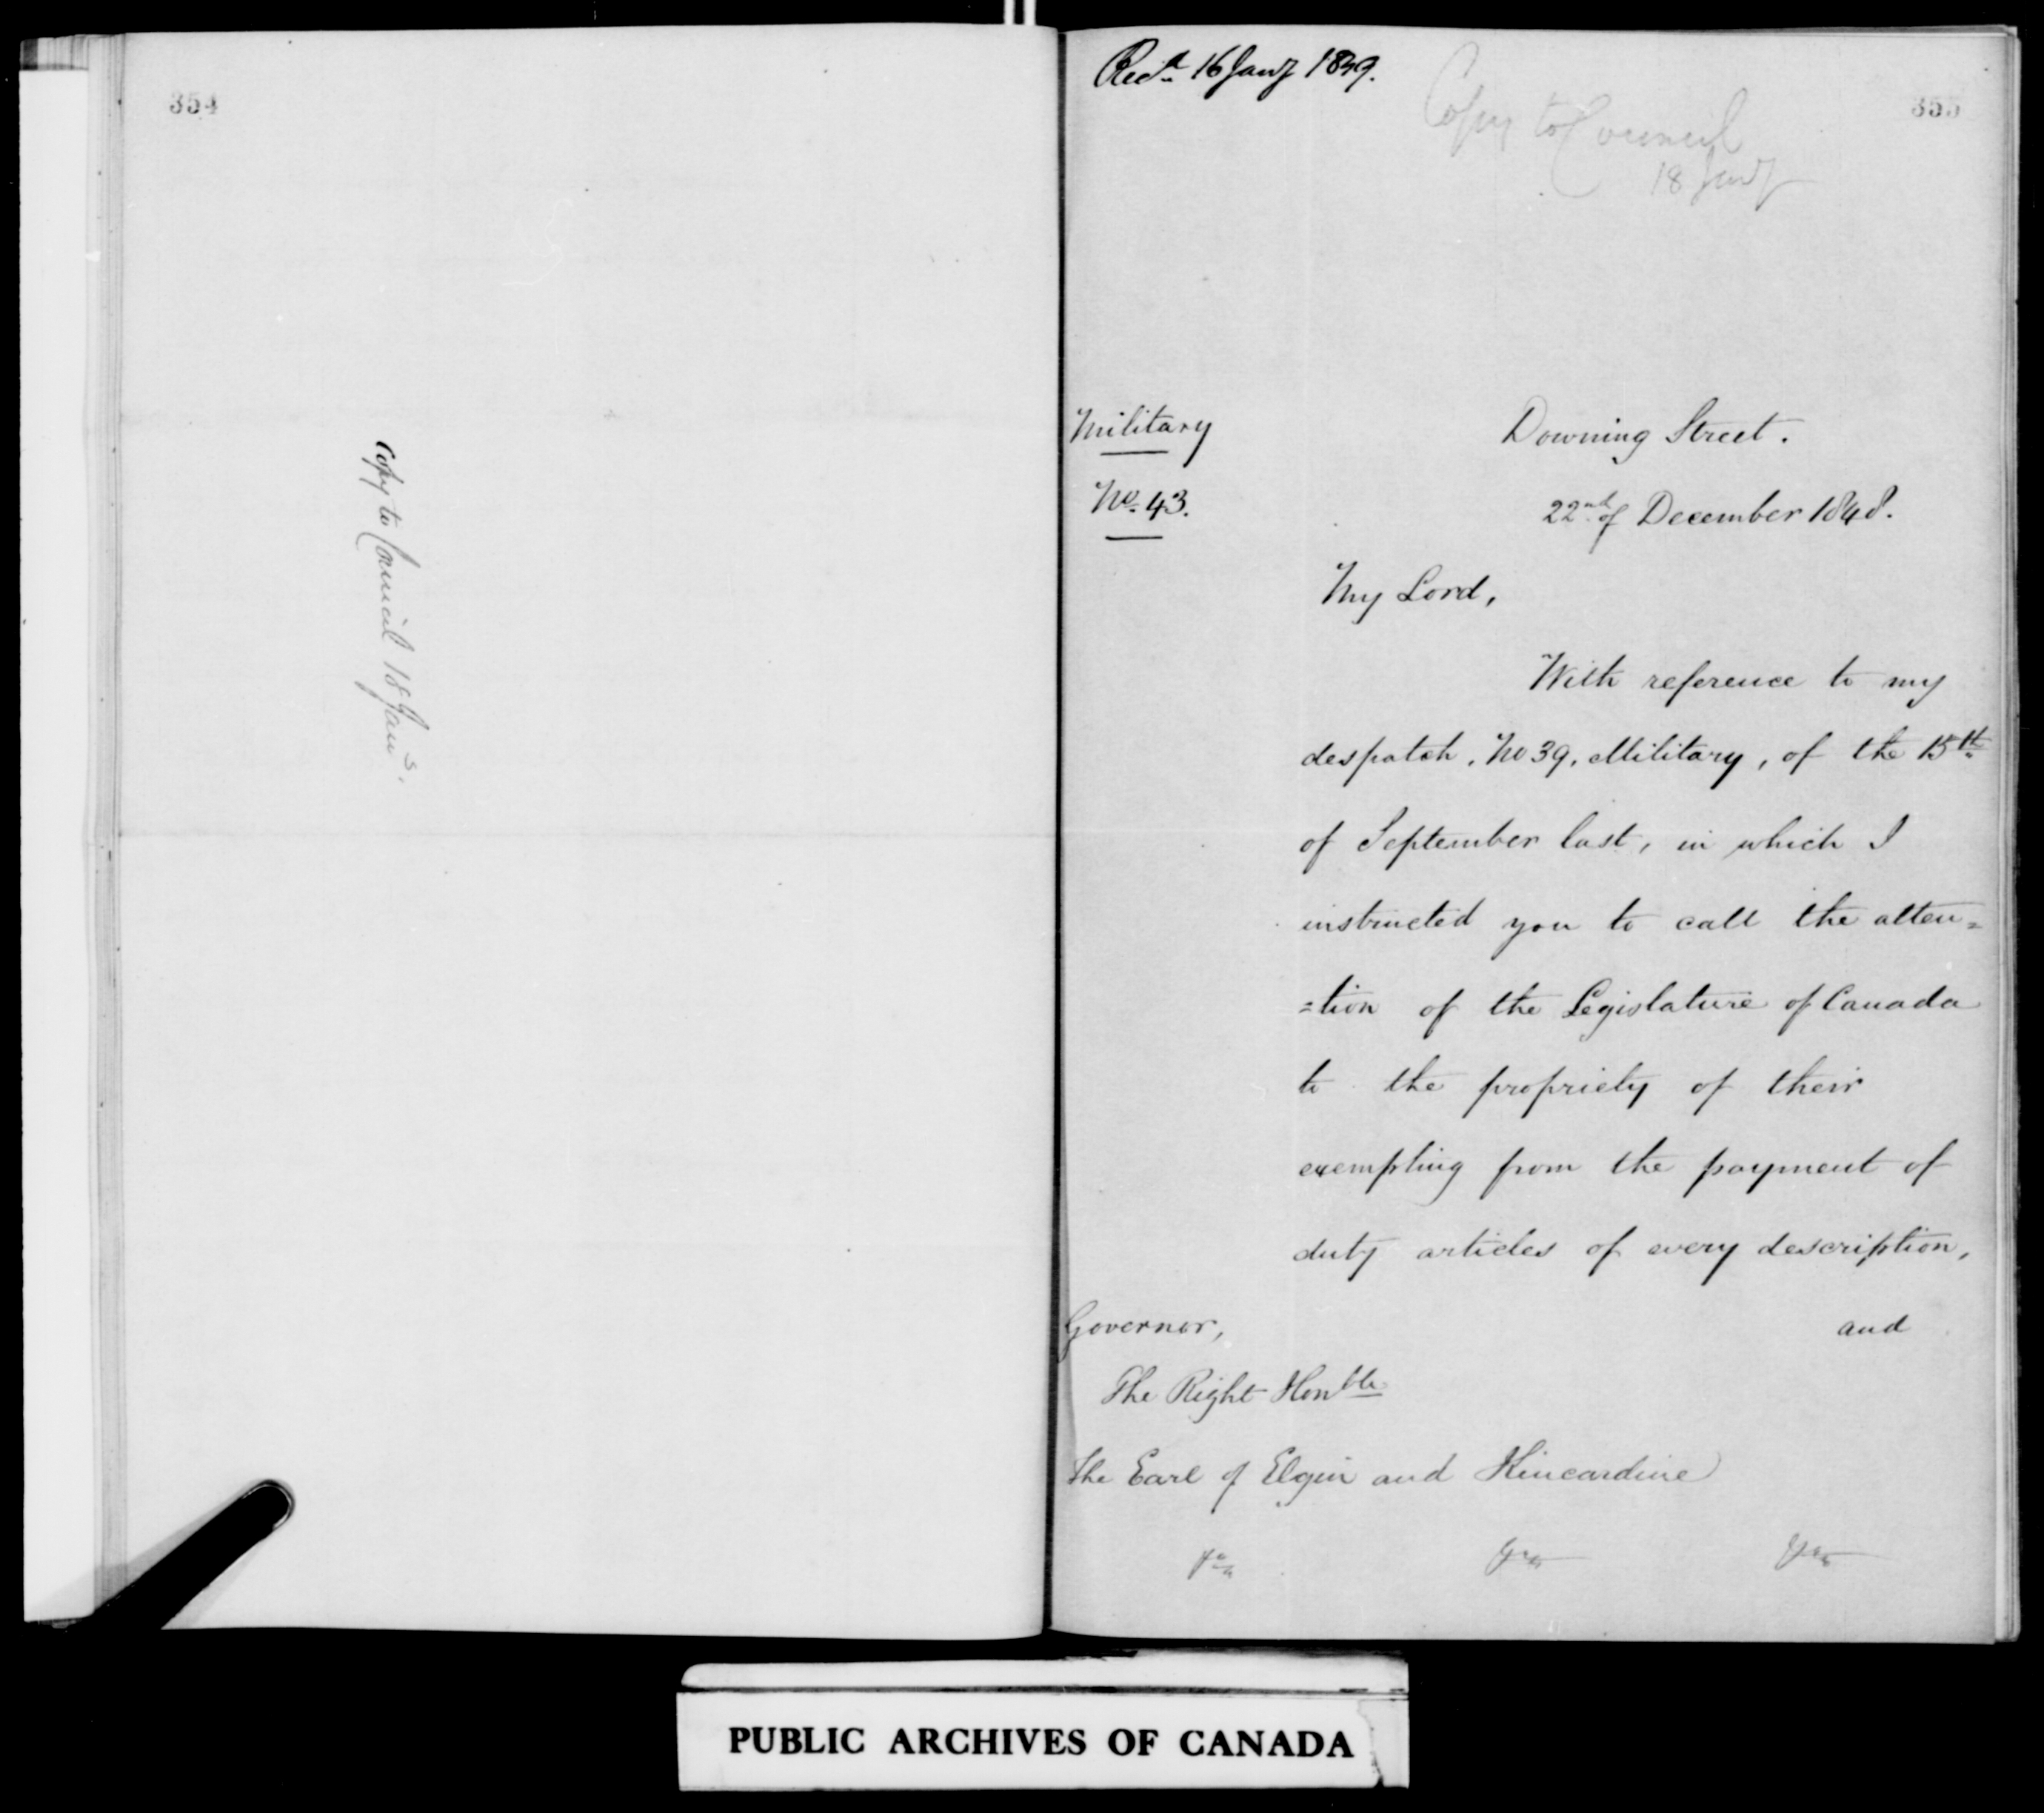 354
Copy to Council 18 Jany.
Recd. 16 Jany 1849.
355
Copy to Council
18 Jany
Military
No. 43.
Downing Street.
22nd of December 1848.
My Lord,
With reference to my
despatch, No 39, Military, of the 15th
of September last, in which I
instructed you to call the atten=
=tion of the Legislature of Canada
to the propriety of their
exempting from the payment of
duty articles of every description,
and
Governor,
The Right Honble
The Earl of Elgin and Kincardine
PUBLIC ARCHIVES OF CANADA